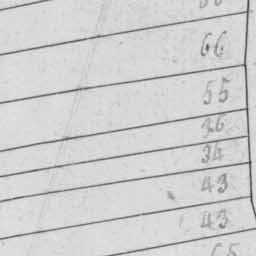 66
55
36
34
43
43
65